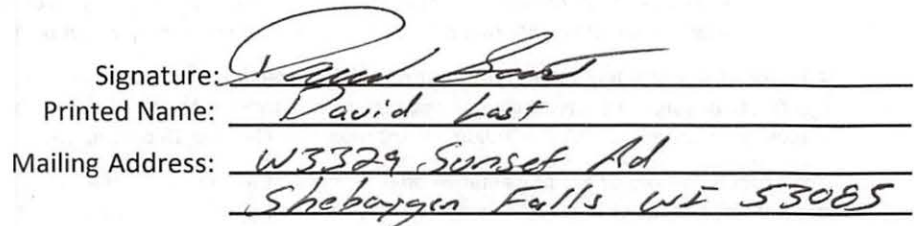 Signature: David Last
Printed Name: David Last
Mailing Address: W3329 Sunset Rd
Sheboygan Falls WI 53085